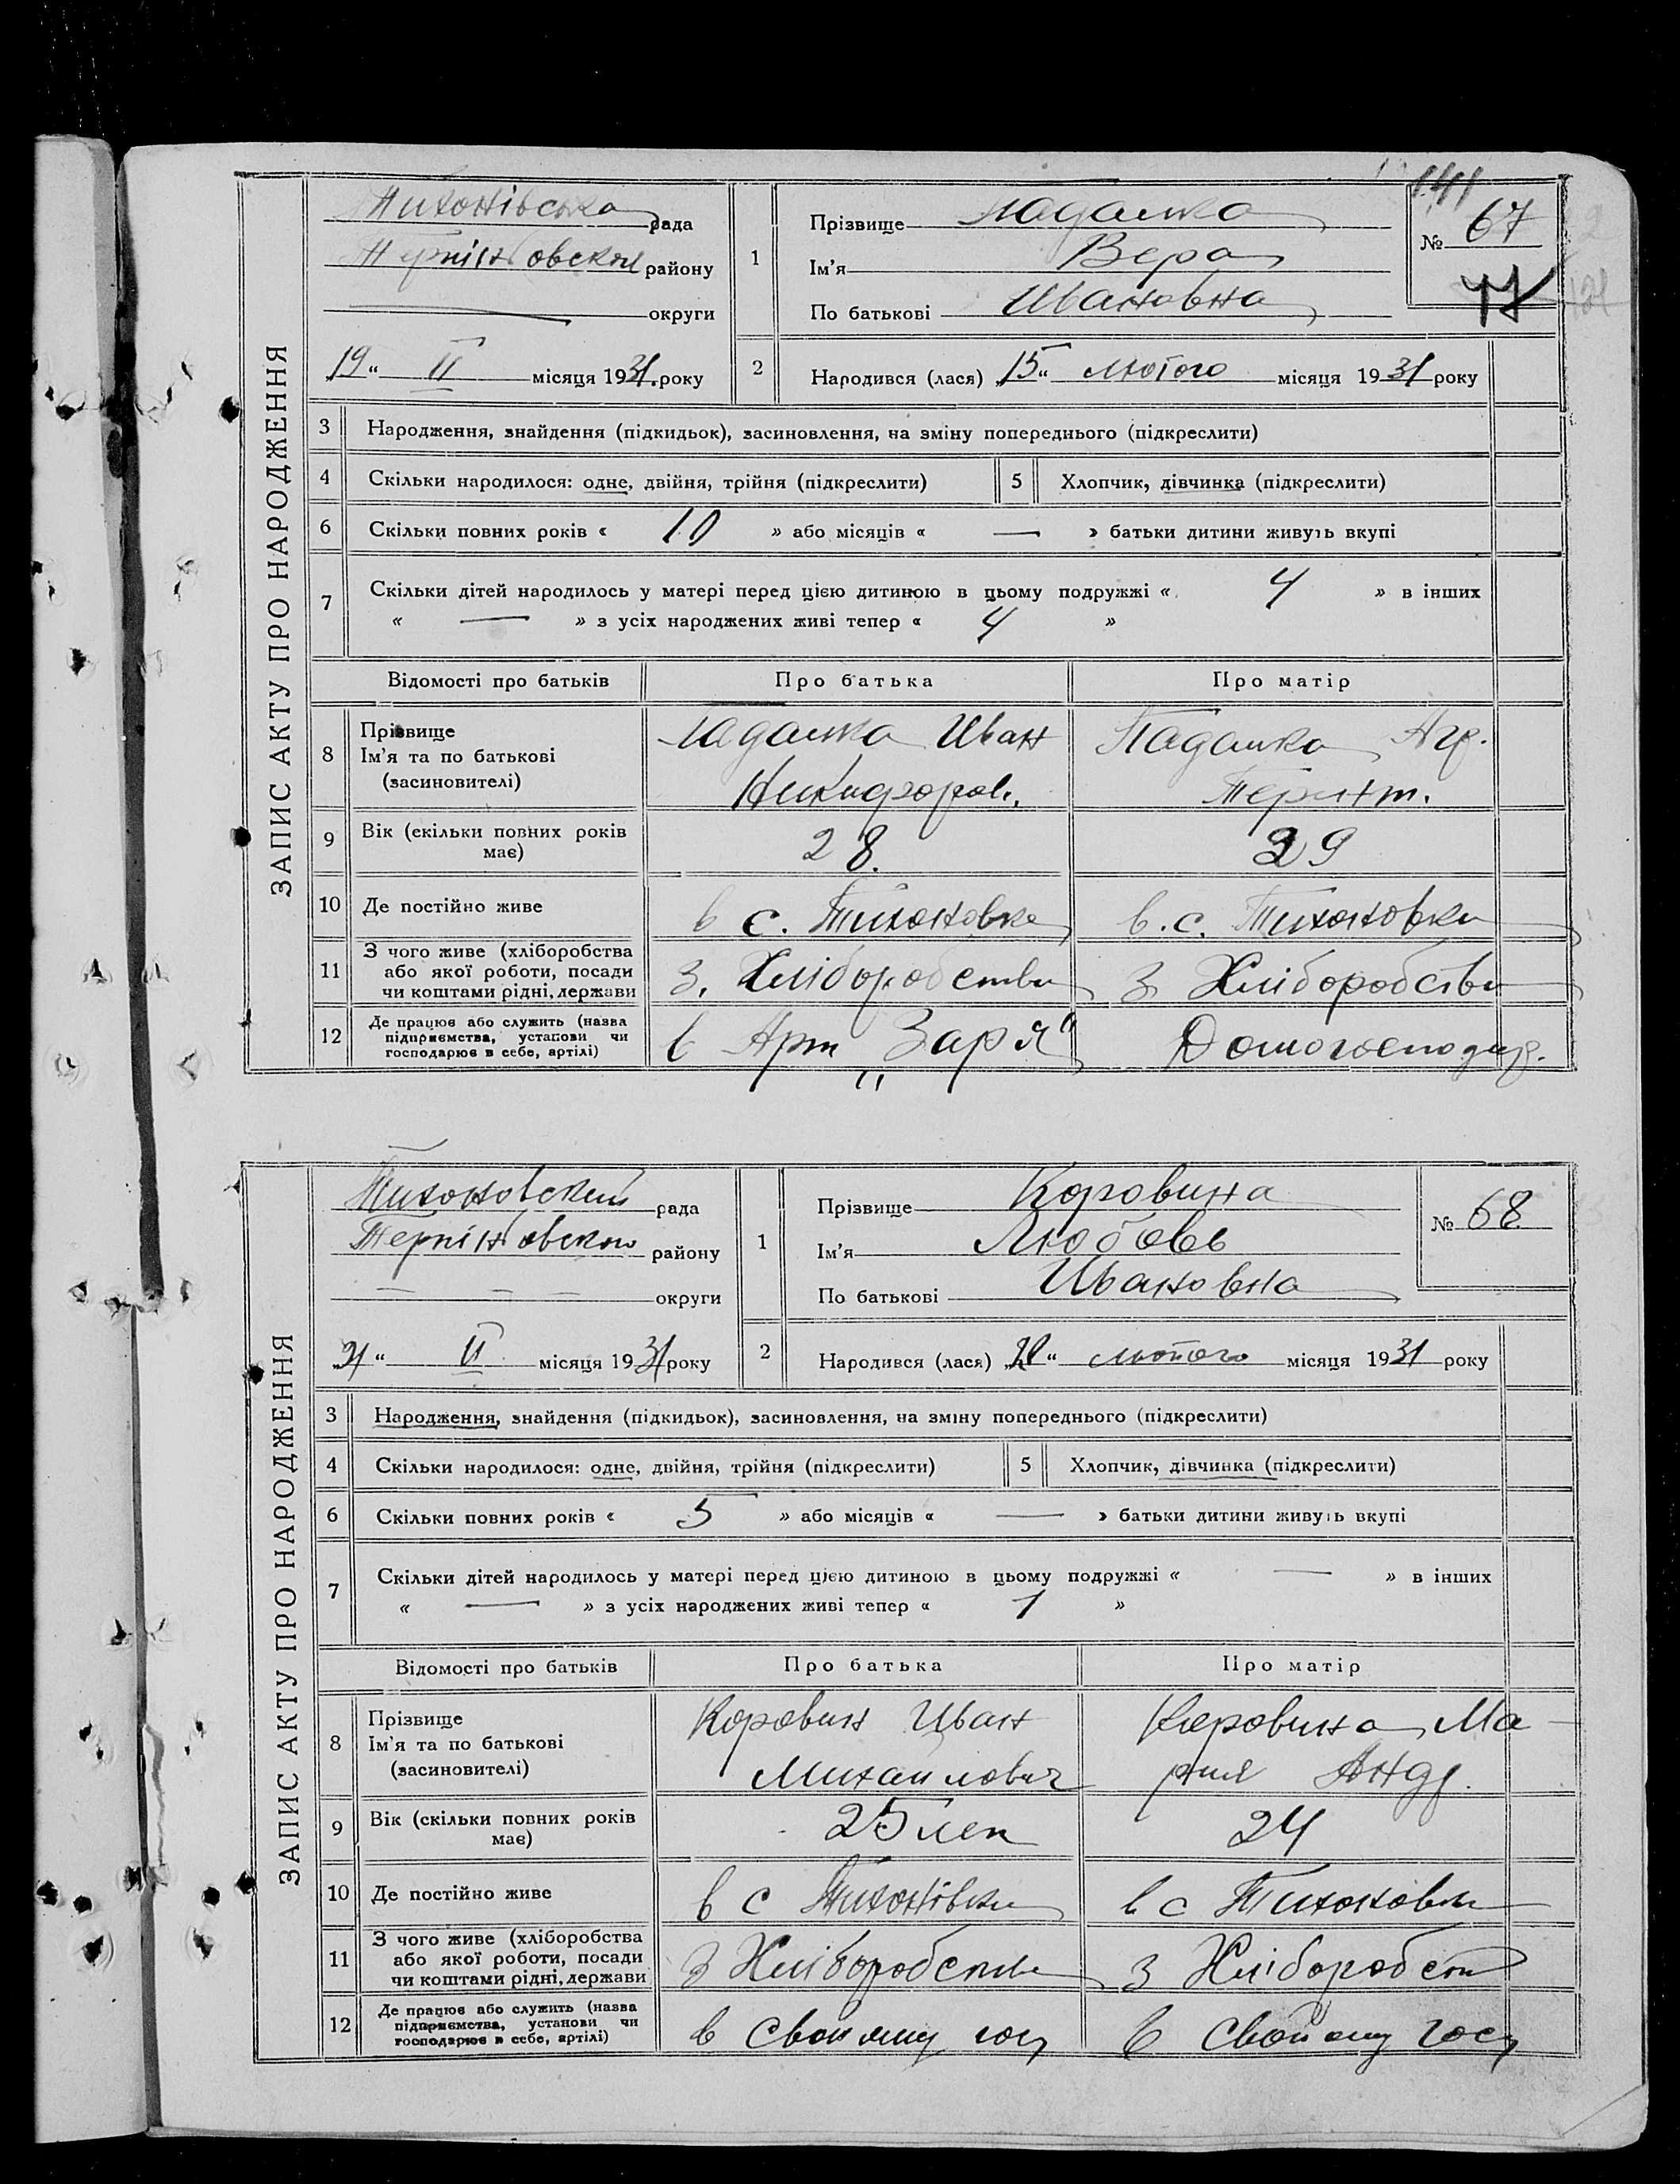 ЗАПИС АКТУ ПРО НАРОДЖЕННЯ
141
Тихонівська рада
Терпіновского району
округи
19 " II місяця 1931. року
1
Прізвище Падалка
Ім'я Вера
По батькові Ивановна
№ 67
77
2
Народився (лася) „15" лютого місяця 1931 року
3 Народження, знайдення (підкидьок), засиновлення, на зміну попереднього (підкреслити)
4 Скільки народилося: одне, двійня, трійня (підкреслити) 5 Хлопчик, дівчинка (підкреслити)
6 Скільки повних років « 10 » або місяців « — » батьки дитини живуть вкупі
7 Скільки дітей народилось у матері перед цією дитиною в цьому подружжі « 4 » в інших
« — » з усіх народжених живі тепер « 4 »
Відомості про батьків Про батька Про матір
8 Прізвище
Ім'я та по батькові
(засиновителі)
Падалка Иван
Никифоров.
Падалка Агр.
Терент.
9 Вік (скільки повних років
має)
28.
29
10 Де постійно живе в с. Тихоновке в. с. Тихоновки
11 З чого живе (хліборобства
або якої роботи, посади
чи коштами рідні, держави
З. Хліборобства З Хліборобства
12 Де працює або служить (назва
підприємства, установи чи
господарює в себе, артілі)
в Арт „Заря" Домогосподар.
ЗАПИС АКТУ ПРО НАРОДЖЕННЯ
Тихоновской рада
Терпіновского району
— — — округи
21 " II місяця 1931 року
1
Прізвище Коровина
Ім'я Любовь
По батькові Ивановна
№ 68
2
Народився (лася) „20" лютого місяця 1931 року
3 Народження, знайдення (підкидьок), засиновлення, на зміну попереднього (підкреслити)
4 Скільки народилося: одне, двійня, трійня (підкреслити) 5 Хлопчик, дівчинка (підкреслити)
6 Скільки повних років « 5 » або місяців « — » батьки дитини живуть вкупі
7 Скільки дітей народилось у матері перед цією дитиною в цьому подружжі « — » в інших
« — » з усіх народжених живі тепер « 1 »
Відомості про батьків Про батька Про матір
8 Прізвище
Ім'я та по батькові
(засиновителі)
Коровин Иван
Михайлович
Коровина Ма-
рия Андр.
9 Вік (скільки повних років
має)
25 лет
24
10 Де постійно живе в с Тихонівки в с Тихоновки
11 З чого живе (хліборобства
або якої роботи, посади
чи коштами рідні, держави
З Хліборобства З Хліборобст
12 Де працює або служить (назва
підприємства, установи чи
господарює в себе, артілі)
в Своиму гос в Свойому гос